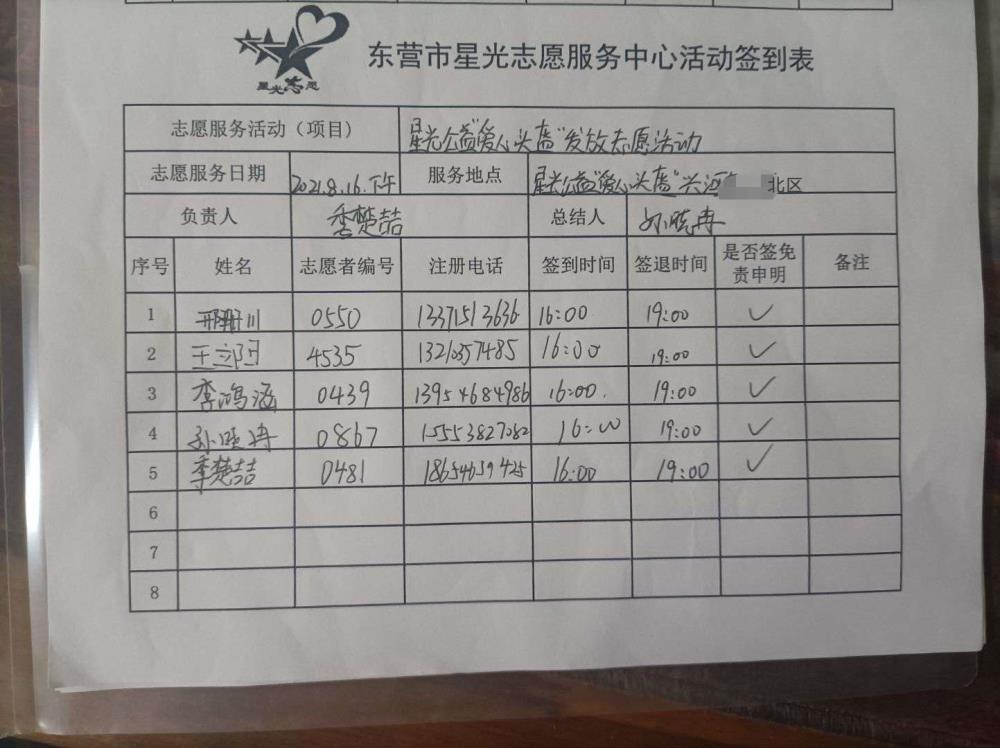 星光志愿
东营市星光志愿服务中心活动签到表
志愿服务活动（项目） 星光公益“爱心头盔”发放志愿活动
志愿服务日期 2021.8.16.下午 服务地点 星光公益“爱心头盔”兴河 北区
负责人 季楚喆 总结人 孙晓冉
序号 姓名 志愿者编号 注册电话 签到时间 签退时间 是否签免责申明 备注
1 邢珊川 0550 13371513636 16:00 19:00 ✓
2 王立阳 4535 13210357485 16:00 19:00 ✓
3 李鸿涵 0439 13954684986 16:00. 19:00 ✓
4 孙晓冉 0867 15553827082 16:00 19:00 ✓
5 季楚喆 0481 18654659425 16:00 19:00 ✓
6
7
8